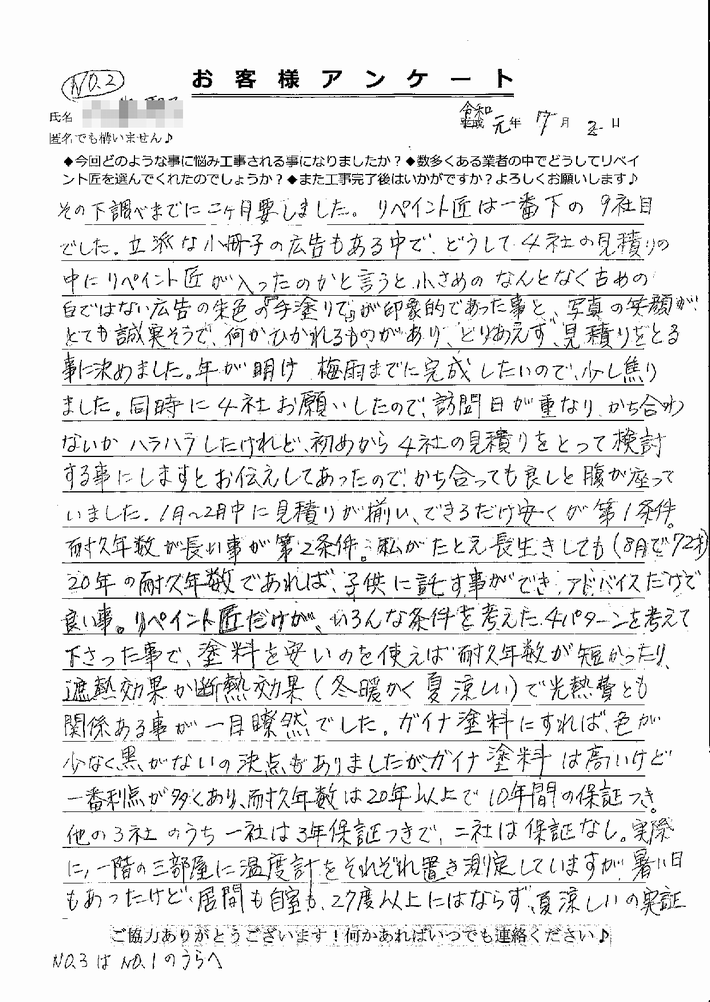 NO.2
お客様アンケート
氏名
匿名でも構いません♪
令和
平成 元年 7月 2日
◆今回どのような事に悩み工事される事になりましたか?◆数多くある業者の中でどうしてリペイ
ント匠を選んでくれたのでしょうか?◆また工事完了後はいかがですか?よろしくお願いします♪
その下調べまでに二ヶ月要しました。リペイント匠は一番下の9社目
でした。立派な小冊子の広告もある中で、どうして4社の見積りの
中にリペイント匠が入ったのかと言うと、小さめのなんとなく古めの
白ではない広告の朱色の『手塗りで』が印象的であった事と、写真の笑顔が、
とても誠実そうで、何かひかれるものがあり、とりあえず、見積りをとる
事に決めました。年が明け 梅雨までに完成したいので、少し焦り
ました。同時に4社お願いしたので、訪問日が重なり、かち合わ
ないかハラハラしたけれど、初めから4社の見積りをとって検討
する事にしますとお伝えしてあったので、かち合っても良しと腹が座って
いました。1月〜2月中に見積りが揃い、できるだけ安くが第1条件。
耐久年数が長い事が第2条件。私がたとえ長生きしても(8月で72才)
20年の耐久年数であれば、子供に託す事ができ、アドバイスだけで
良い事。リペイント匠だけが、いろんな条件を考えた、4パターンを考えて
下さった事で、塗料を安いのを使えば耐久年数が短かったり、
遮熱効果か断熱効果(冬暖かく夏涼しい)で光熱費とも
関係ある事が一目瞭然でした。ガイナ塗料にすれば、色が
少なく、黒がないの決点もありましたが、ガイナ塗料は高いけど
一番利点が多くあり、耐久年数は20年以上で10年間の保証つき。
他の3社のうち一社は3年保証つきで、二社は保証なし。実際
に、一階の三部屋に温度計をそれぞれ置き測定していますが、暑い日
もあったけど、居間も自室も、27度以上にはならず、夏涼しいの実証
ご協力ありがとうございます!何かあればいつでも連絡ください♪
NO.3はNO.1のうらへ